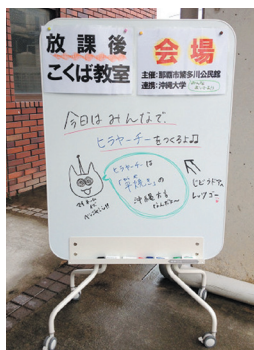 放課後
こくば教室
会場
主催：那覇市繁多川公民館
連携：沖縄大学
今日はみんなで、
ヒラヤーチーをつくるよ♫
ヒラヤーチーは
の
沖縄方言
なんだよ〜
レッツゴー